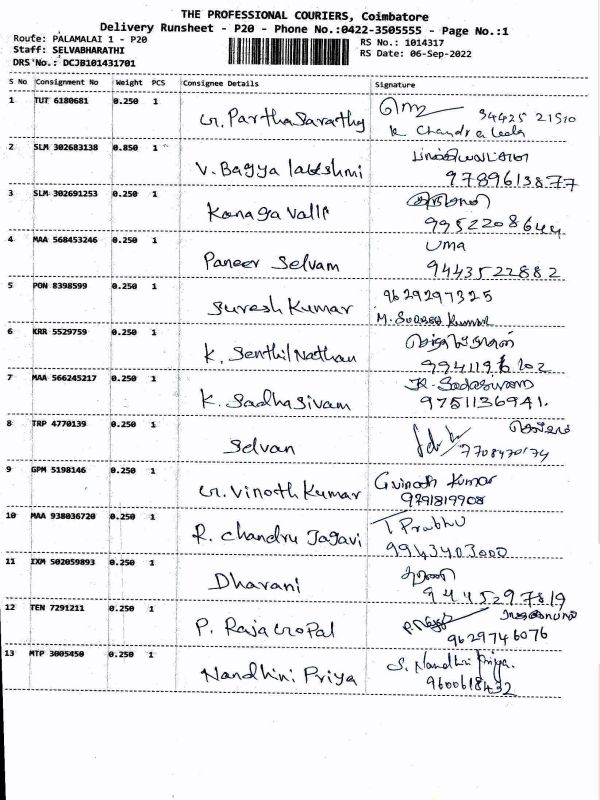 THE PROFESSIONAL COURIERS, Coimbatore
Delivery Runsheet - P20 - Phone No.:0422-3505555 - Page No.:1
Route: PALAMALAI 1 - P20
RS No.: 1014317
Staff: SELVABHARATHI
RS Date: 06-Sep-2022
DRS No.: DCJB101431701
S No Consignment No Weight PCS Consignee Details Signature
1 TUT 6180681 0.250 1 G. Parthasarathy 94425 21510
K Chandra Leela
2 SLM 302683138 0.850 1 V. Bagya lakshmi பாக்கியலட்சுமி
9789613877
3 SLM 302691253 0.250 1 Kanaga valli
9952208644
4 MAA 568453246 0.250 1 Paneer Selvam Uma
9443522882
5 PON 8398599 0.250 1 Suresh Kumar 9629297325
M. Suresh Kumar
6 KRR 5529759 0.250 1 K. Senthil Nathan
7 MAA 566245217 0.250 1 K. Sadhasivam K. Sadasivam
9751136941.
8 TRP 4770139 0.250 1 Selvan
7708470174
9 GPM 5198146 0.250 1 G. Vinoth Kumar G vinoth Kumar
9791819908
10 MAA 938036720 0.250 1 R. Chandru Jagavi T Prabhu
9943403000
11 IXM 502059893 0.250 1 Dharani தரணி
9445297819
12 TEN 7291211 0.250 1 P. Rajagopal
9629746076
13 MTP 3005450 0.250 1 Nandhini Priya S. Nandhini Priya.
9600618432